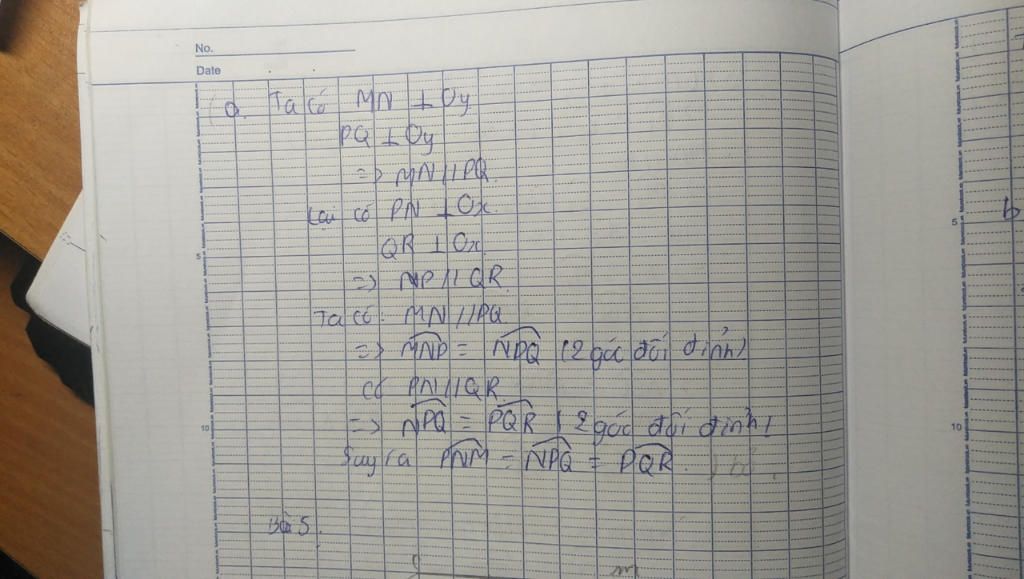 No.
Date
a. Ta có MN ⊥ Oy
PQ ⊥ Oy
=> MN // PQ.
Lại có PN ⊥ Ox.
QR ⊥ Ox.
=> NP // QR.
5
Ta có: MN // PQ
=> MNP = NPQ (2 góc đối đỉnh)
có PN // QR.
=> NPQ = PQR (2 góc đối đỉnh)
10
Suy ra PNM = NPQ = PQR.
Bài 5.
m
5
b
10